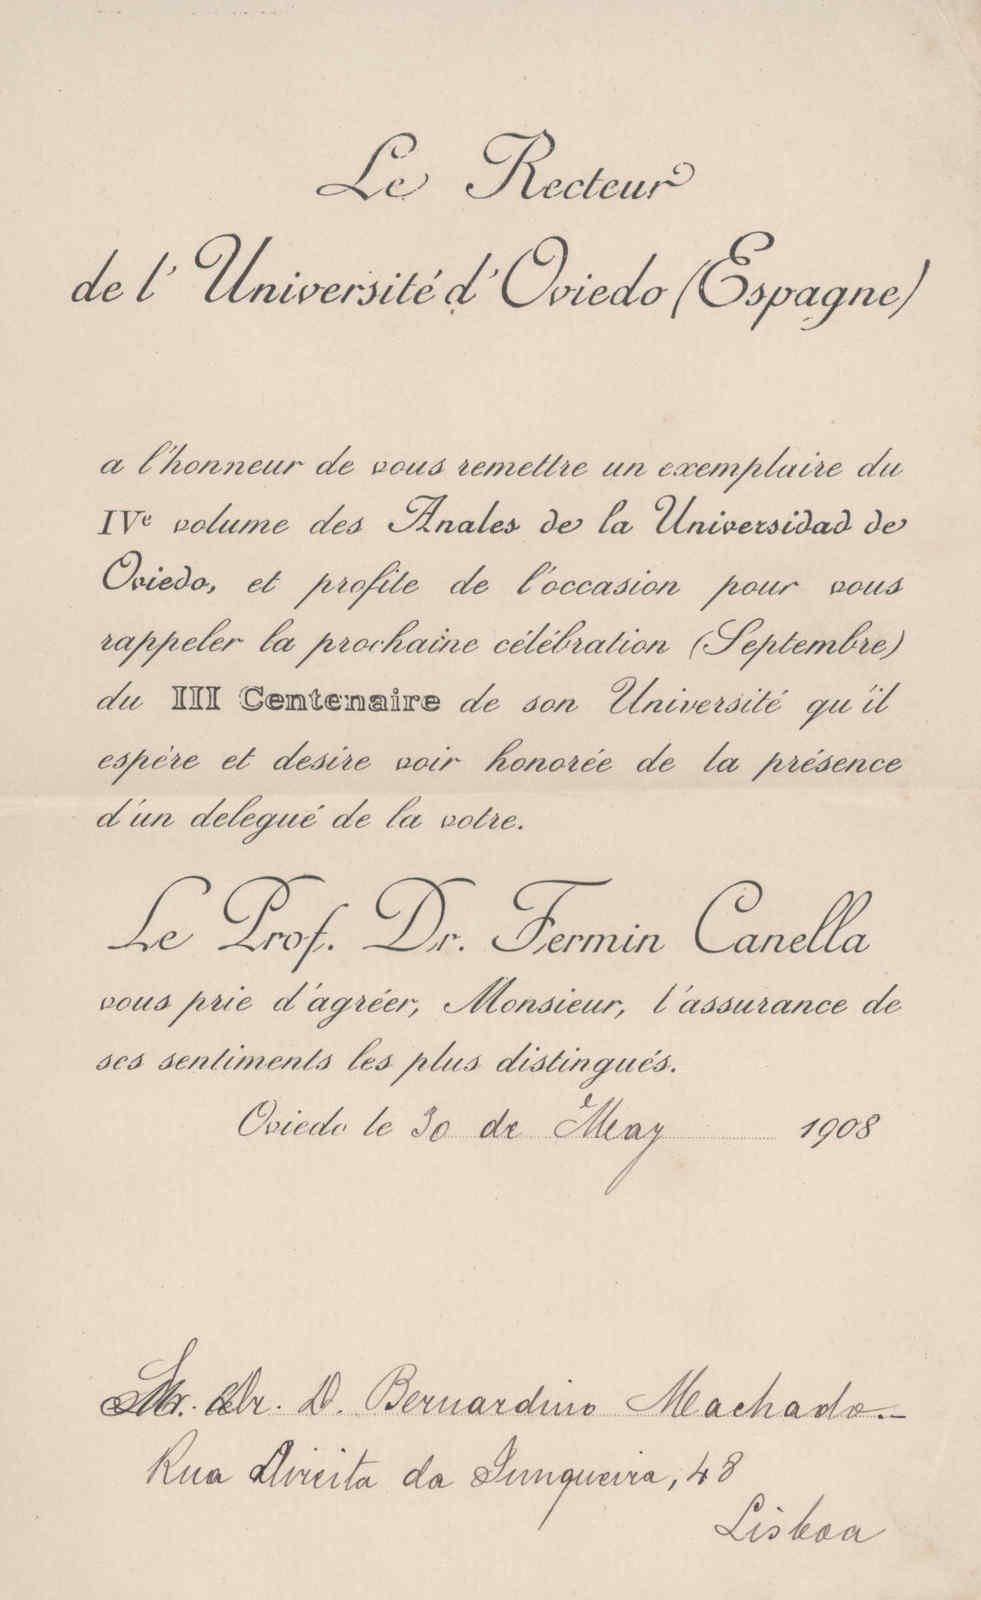 Le Recteur
de l' Université d' Oviedo (Espagne)
a l'honneur de vous remettre un exemplaire du
IVe volume des Anales de la Universidad de
Oviedo, et profite de l'occasion pour vous
rappeler la prochaine célébration (Septembre)
du III Centenaire de son Université qu'il
espère et desire voir honorée de la présence
d'un delegué de la votre.
Le Prof. Dr. Fermin Canella
vous prie d'agréer, Monsieur, l'assurance de
ses sentiments les plus distingués.
Oviedo le 30 de May 1908
Dr. D. Bernardino Machado.
Rua Direita da Junqueira, 48
Lisboa